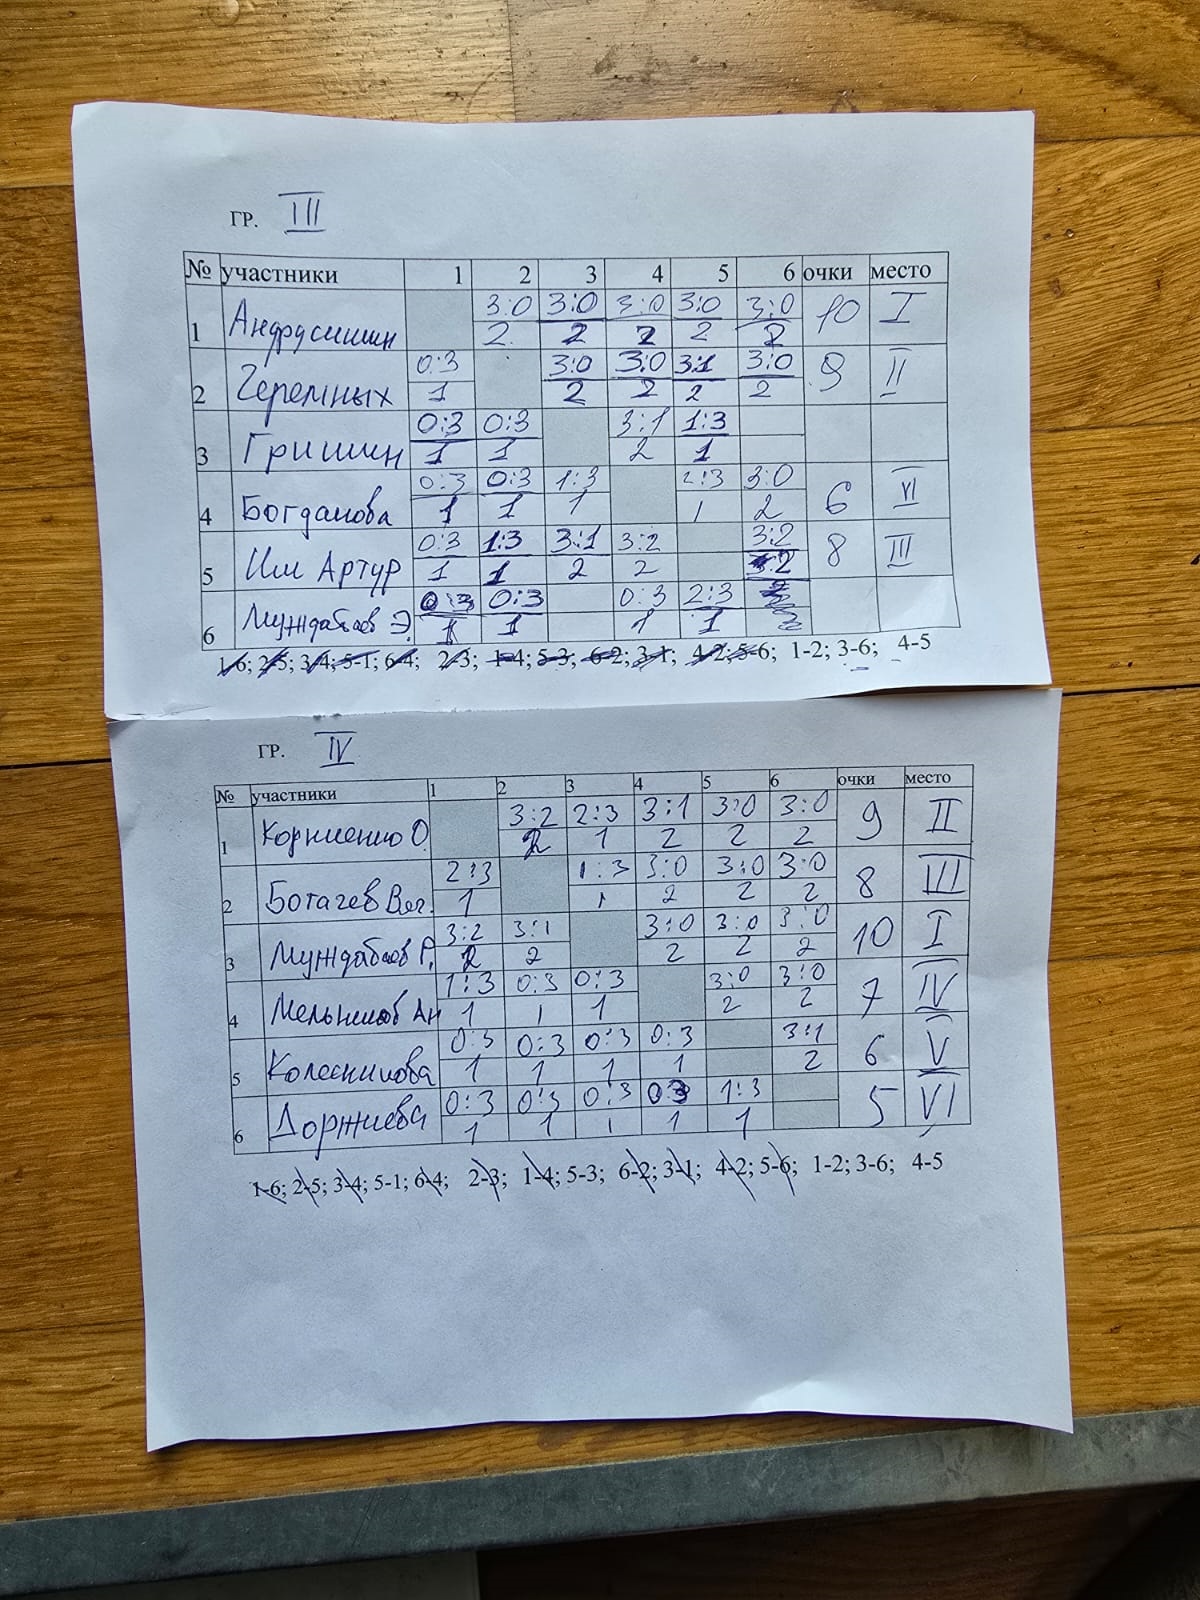 ГР. III
№ участники 1 2 3 4 5 6 очки место
1 Андрусишин 3:0 3:0 3:0 3:0 3:0 10 I
2 2 2 2 2
2 Черемных 0:3 3:0 3:0 3:1 3:0 9 II
1 2 2 2 2
3 Гришин 0:3 0:3 3:1 1:3
1 1 2 1
4 Богданова 0:3 0:3 1:3 2:3 3:0 6 VI
1 1 1 1 2
5 Ким Артур 0:3 1:3 3:1 3:2 3:2 8 III
1 1 2 2 2
6 Муждабаев Э. 0:3 0:3 0:3 2:3
1 1 1 1
1-6; 2-5; 3-4; 5-1; 6-4; 2-3; 1-4; 5-3; 6-2; 3-1; 4-2; 5-6; 1-2; 3-6; 4-5
ГР. IV
№ участники 1 2 3 4 5 6 очки место
1 Корниенко О. 3:2 2:3 3:1 3:0 3:0 9 II
2 1 2 2 2
2 Ботачев Вяч. 2:3 1:3 3:0 3:0 3:0 8 III
1 1 2 2 2
3 Муждабаев Р. 3:2 3:1 3:0 3:0 3:0 10 I
2 2 2 2 2
4 Мельников Ан 1:3 0:3 0:3 3:0 3:0 7 IV
1 1 1 2 2
5 Колесникова 0:3 0:3 0:3 0:3 3:1 6 V
1 1 1 1 2
6 Доржиева 0:3 0:3 0:3 0:3 1:3 5 VI
1 1 1 1 1
1-6; 2-5; 3-4; 5-1; 6-4; 2-3; 1-4; 5-3; 6-2; 3-1; 4-2; 5-6; 1-2; 3-6; 4-5